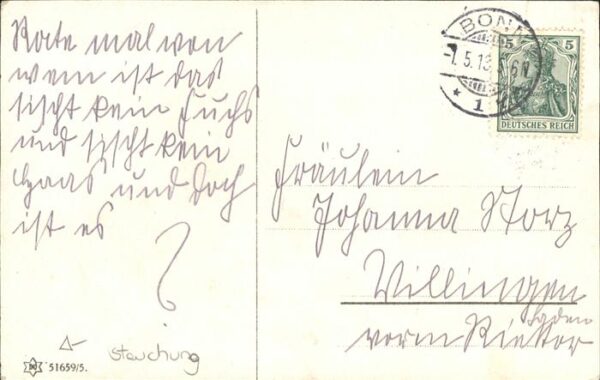 Rate mal von
wem ist das
sischt kein Fuchs
und sischt kein
Haas und doch
ist es
?
BONN
-1.5.13
* 1
5 5
DEUTSCHES REICH
Fräulein
Johanna Storz
Villingen
Baden
vorm Rietor
Stauchung
51659/5.